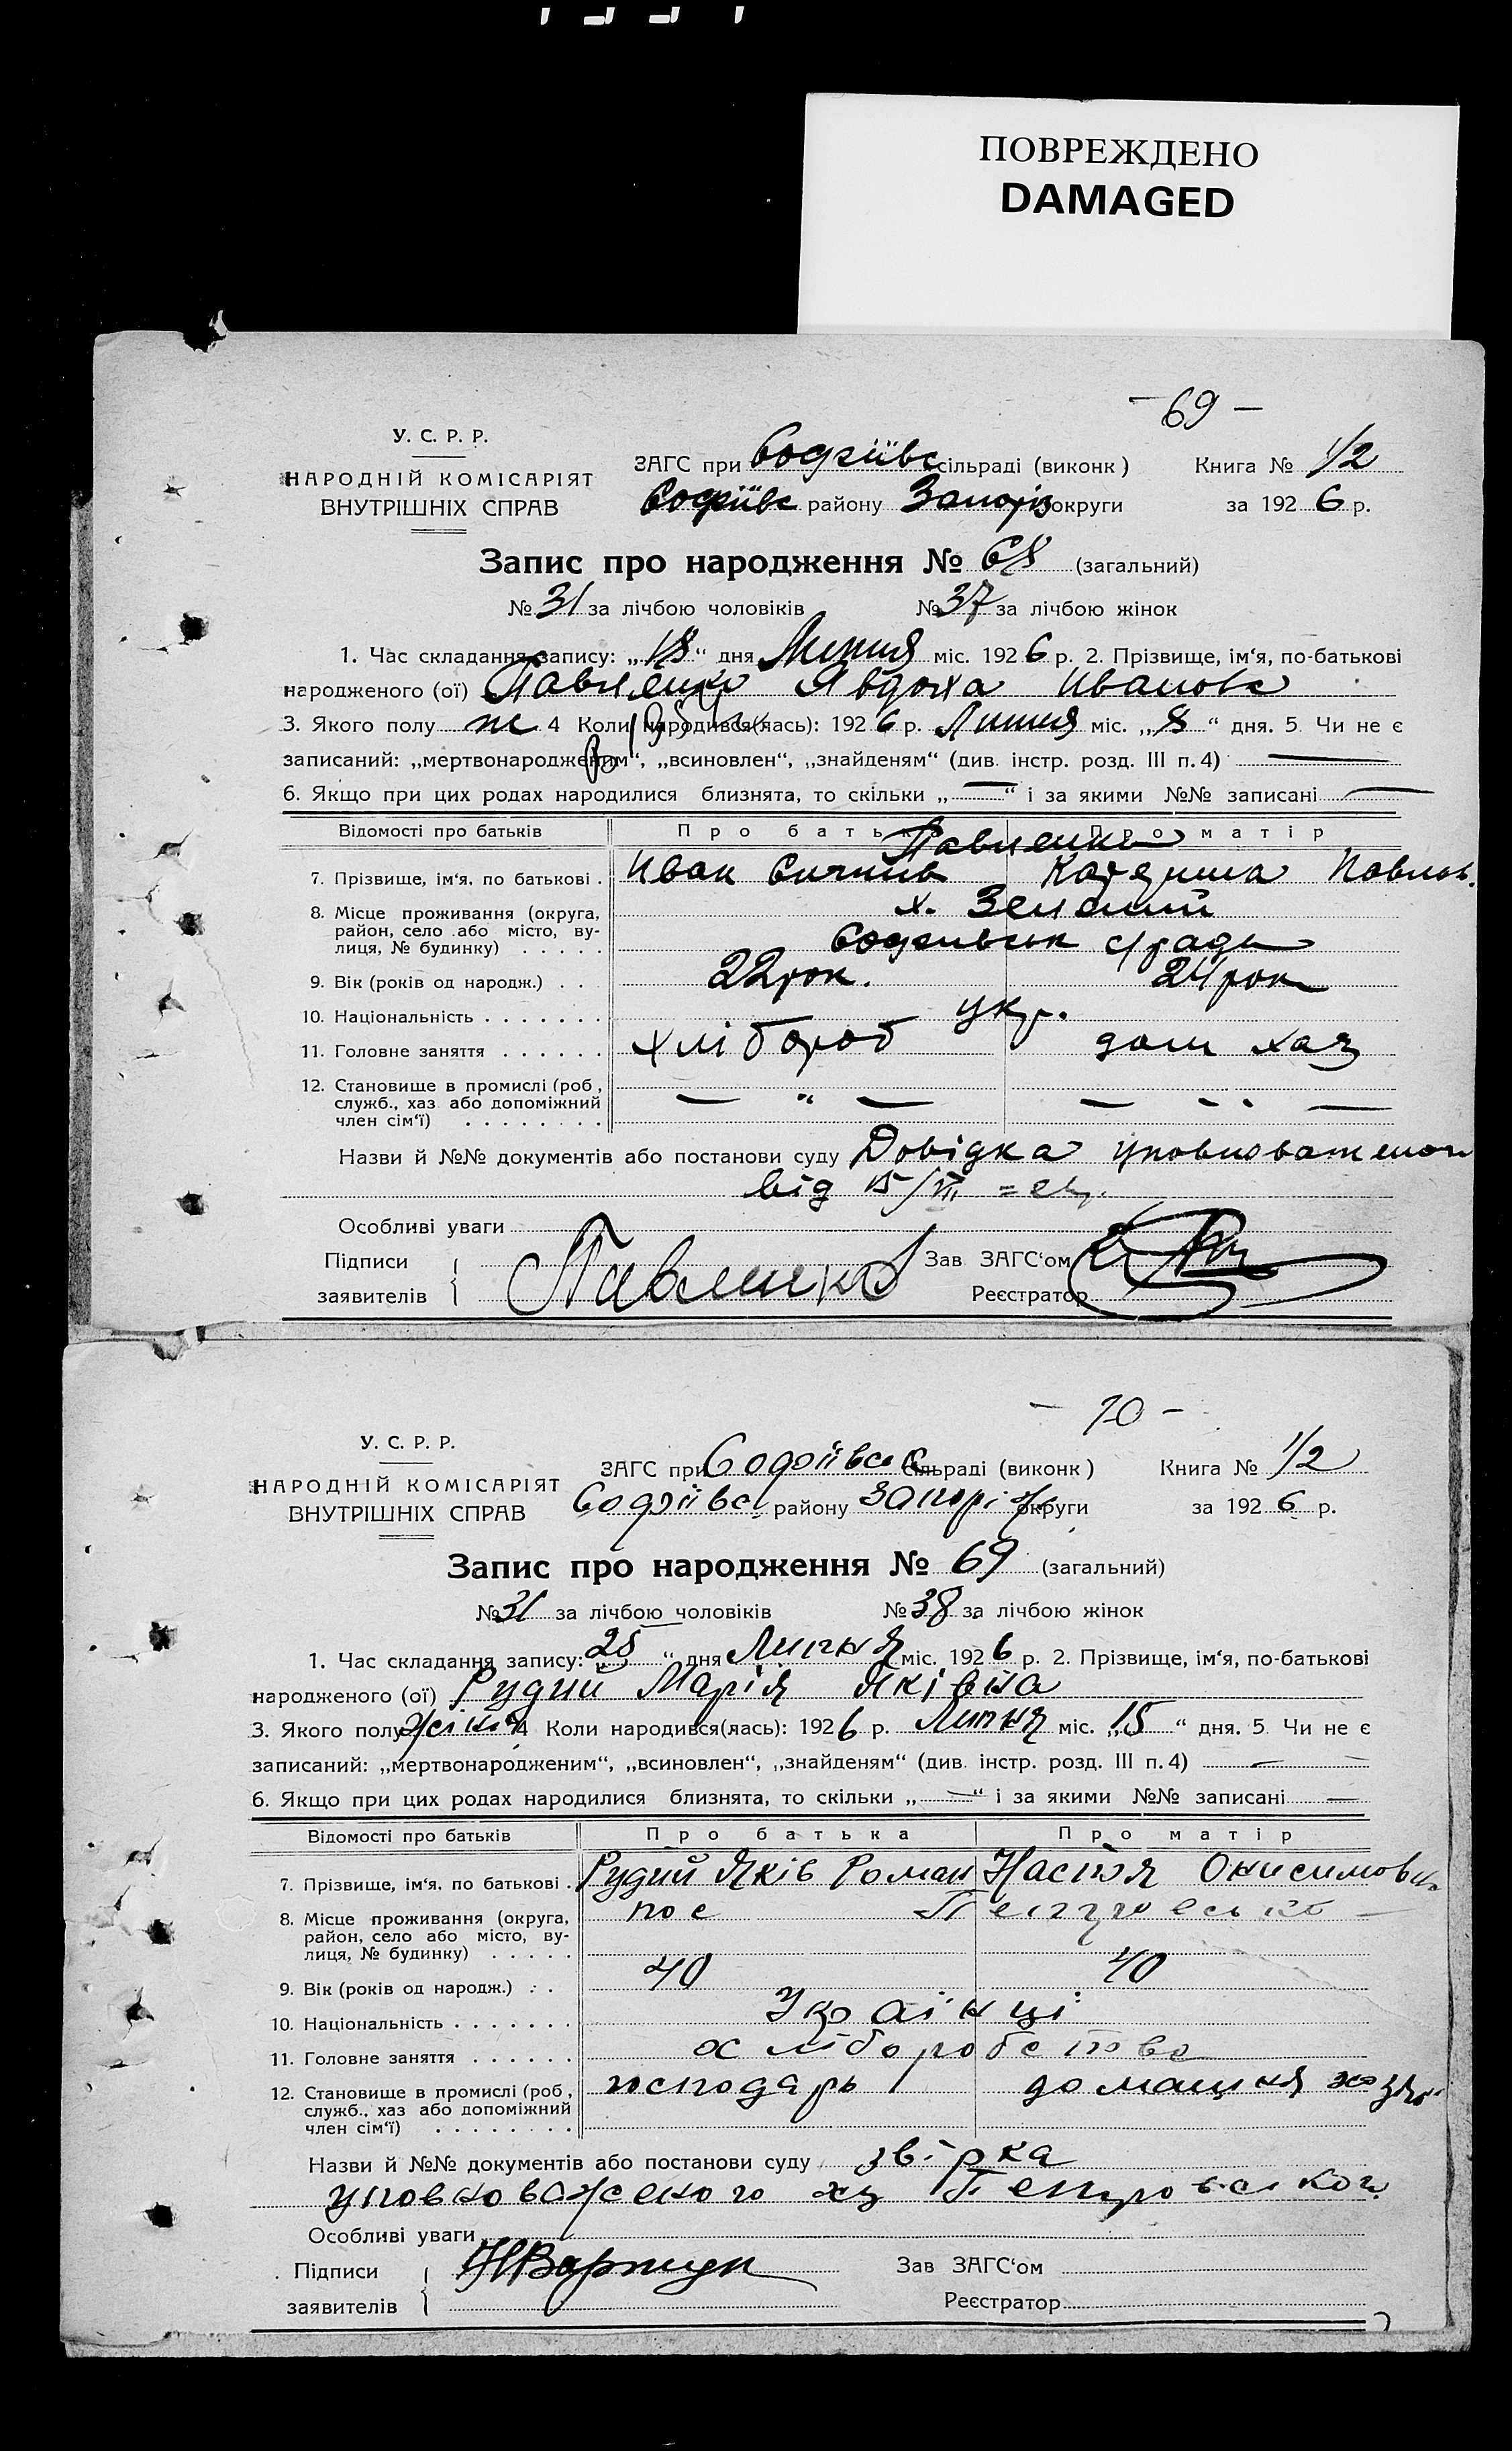 ПОВРЕЖДЕНО
DAMAGED
- 69 -
У. С. Р. Р.
НАРОДНІЙ КОМІСАРІЯТ
ВНУТРІШНІХ СПРАВ
ЗАГС при Софіївс сільраді (виконк) Книга № 1/2
Софіївс району Запоріз округи за 1926 р.
Запис про народження № 68 (загальний)
№ 31 за лічбою чоловіків № 37 за лічбою жінок
1. Час складання запису: „18“ дня Липня міс. 1926 р. 2. Прізвище, ім‘я, по-батькові
народженого (ої) Павленко Явдоха Иванов
3. Якого полу ж 4 Коли народився(лась): 1926 р. Липня міс. „8“ дня. 5 Чи не є
записаний: „мертвонародженим“, „всиновлен“, „знайденям“ (див. інстр. розд. III п. 4) —
6. Якщо при цих родах народилися близнята, то скільки „—“ і за якими №№ записані —
Відомості про батьків Про батька Про матір
Павленко
7. Прізвище, ім‘я, по батькові . Иван Катерина Павлов.
8. Місце проживання (округа, район, село або місто, вулиця, № будинку) . . . . . х. Зелений
с/ради
9. Вік (років од народж.) . . 22 рок. 24 рок
10. Національність . . . . . . . укр.
11. Головне заняття . . . . . . хлібороб дом хаз
12. Становище в промислі (роб, служб., хаз або допоміжний член сім‘ї) . . . . . . . . — „ — — „ —
Назви й №№ документів або постанови суду Довідка уповноваженого
від 15/VII
Особливі уваги
Підписи заявителів Павленко Зав ЗАГС‘ом
Реєстратор
- 70 -
У. С. Р. Р.
НАРОДНІЙ КОМІСАРІЯТ
ВНУТРІШНІХ СПРАВ
ЗАГС при Софіївськ сільраді (виконк) Книга № 1/2
Софіївсь району Запоріж округи за 1926 р.
Запис про народження № 69 (загальний)
№ 31 за лічбою чоловіків № 38 за лічбою жінок
1. Час складання запису: „25“ дня Липня міс. 1926 р. 2. Прізвище, ім‘я, по-батькові
народженого (ої) Рудий Марія Яківна
3. Якого полу жіноч 4 Коли народився(лась): 1926 р. Липня міс. „15“ дня. 5 Чи не є
записаний: „мертвонародженим“, „всиновлен“, „знайденям“ (див. інстр. розд. III п. 4) —
6. Якщо при цих родах народилися близнята, то скільки „—“ і за якими №№ записані —
Відомості про батьків Про батька Про матір
7. Прізвище, ім‘я, по батькові . Рудий Яків Роман Настя Онисимовн
8. Місце проживання (округа, район, село або місто, вулиця, № будинку) . . . . . пос Петровське
9. Вік (років од народж.) . . 40 40
10. Національність . . . . . . . Українці
11. Головне заняття . . . . . . хліборобство
12. Становище в промислі (роб, служб., хаз або допоміжний член сім‘ї) . . . . . . . . господарь домашня хозяй
Назви й №№ документів або постанови суду
уповноваженого Петровського
Особливі уваги
Підписи заявителів Зав ЗАГС‘ом
Реєстратор